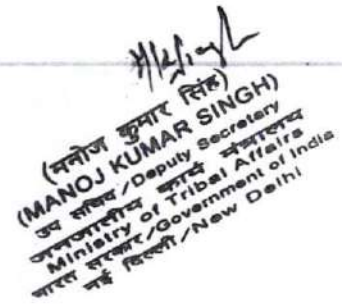 (मनोज कुमार सिंह)
(MANOJ KUMAR SINGH)
उप सचिव / Deputy Secretary
जनजातीय कार्य मंत्रालय
Ministry of Tribal Affairs
भारत सरकार / Government of India
नई दिल्ली / New Delhi